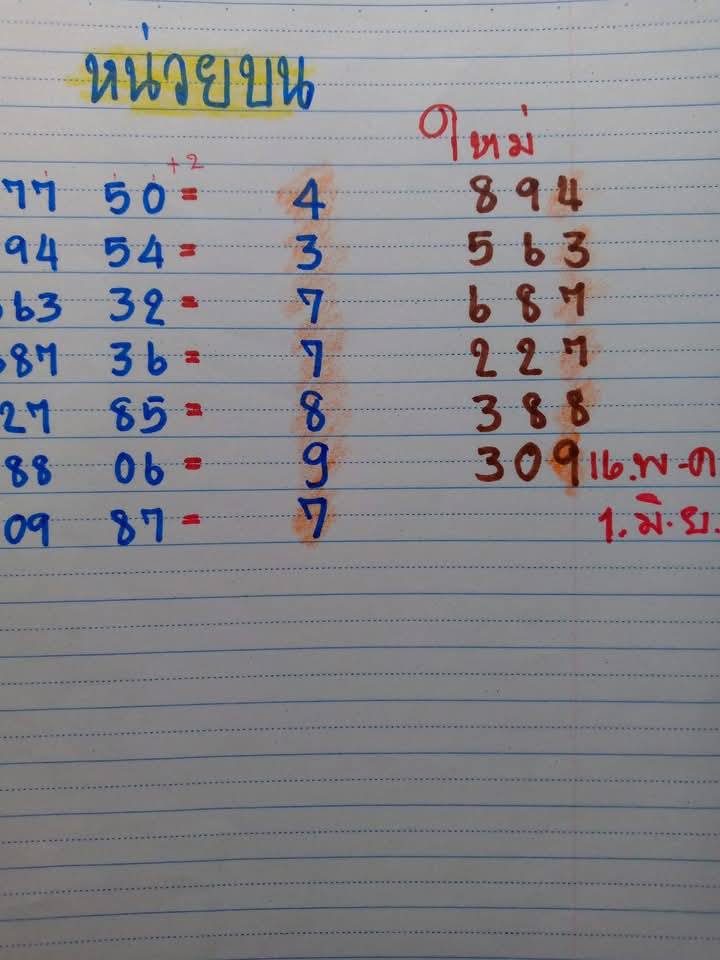 หน่วยบน
ใหม่
+2
77 50 = 4 894
94 54 = 3 563
63 32 = 7 687
87 36 = 7 227
27 85 = 8 388
88 06 = 9 309 16.พ-ค
09 87 = 7 1.มิ.ย.